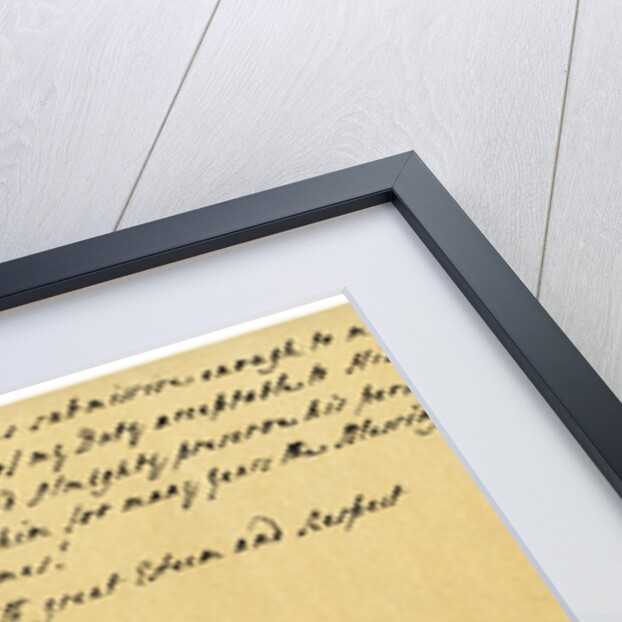 submission enough to
my Duty acceptable to His
Almighty preserve his
him for many years the Blessing
great Esteem and Respect